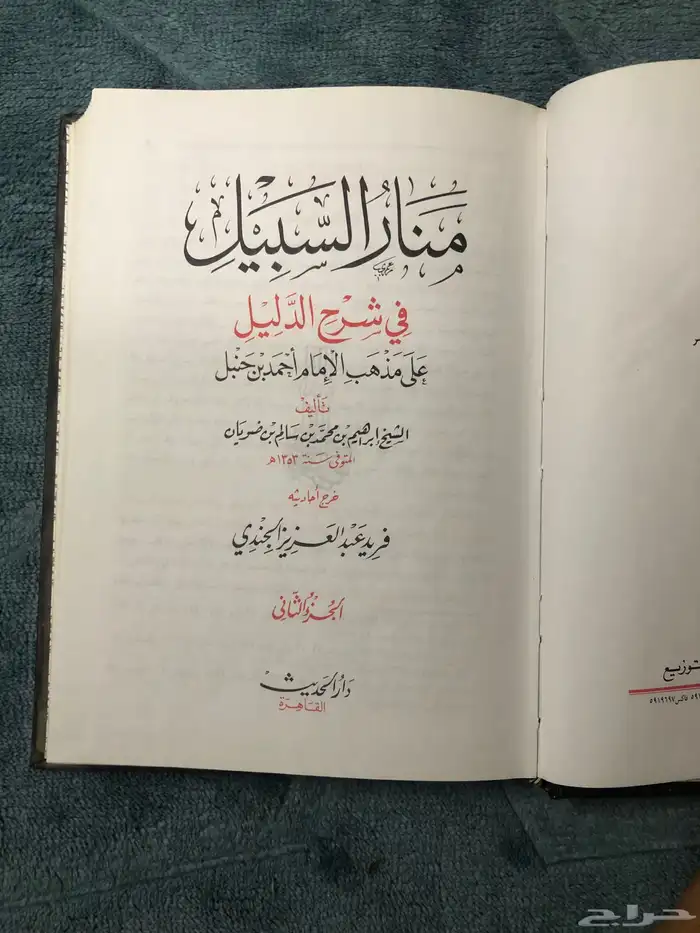 مَنَارُ السَّبِيْلِ
فِي شَرْحِ الدَّلِيْلِ
عَلَى مَذْهَبِ الإِمَامِ أَحْمَدِ بْنِ حَنْبَل
تأليف
الشيخ إبراهيم بن محمد بن سالم بن ضويان
المتوفى سنة ١٣٥٣ هـ
خرج أحاديثه
فريد عبد العزيز الجندي
الجزء الثاني
دار الحديث
القاهرة
توزيع
فاكس ٥٩١٩٦٩٧
حراج